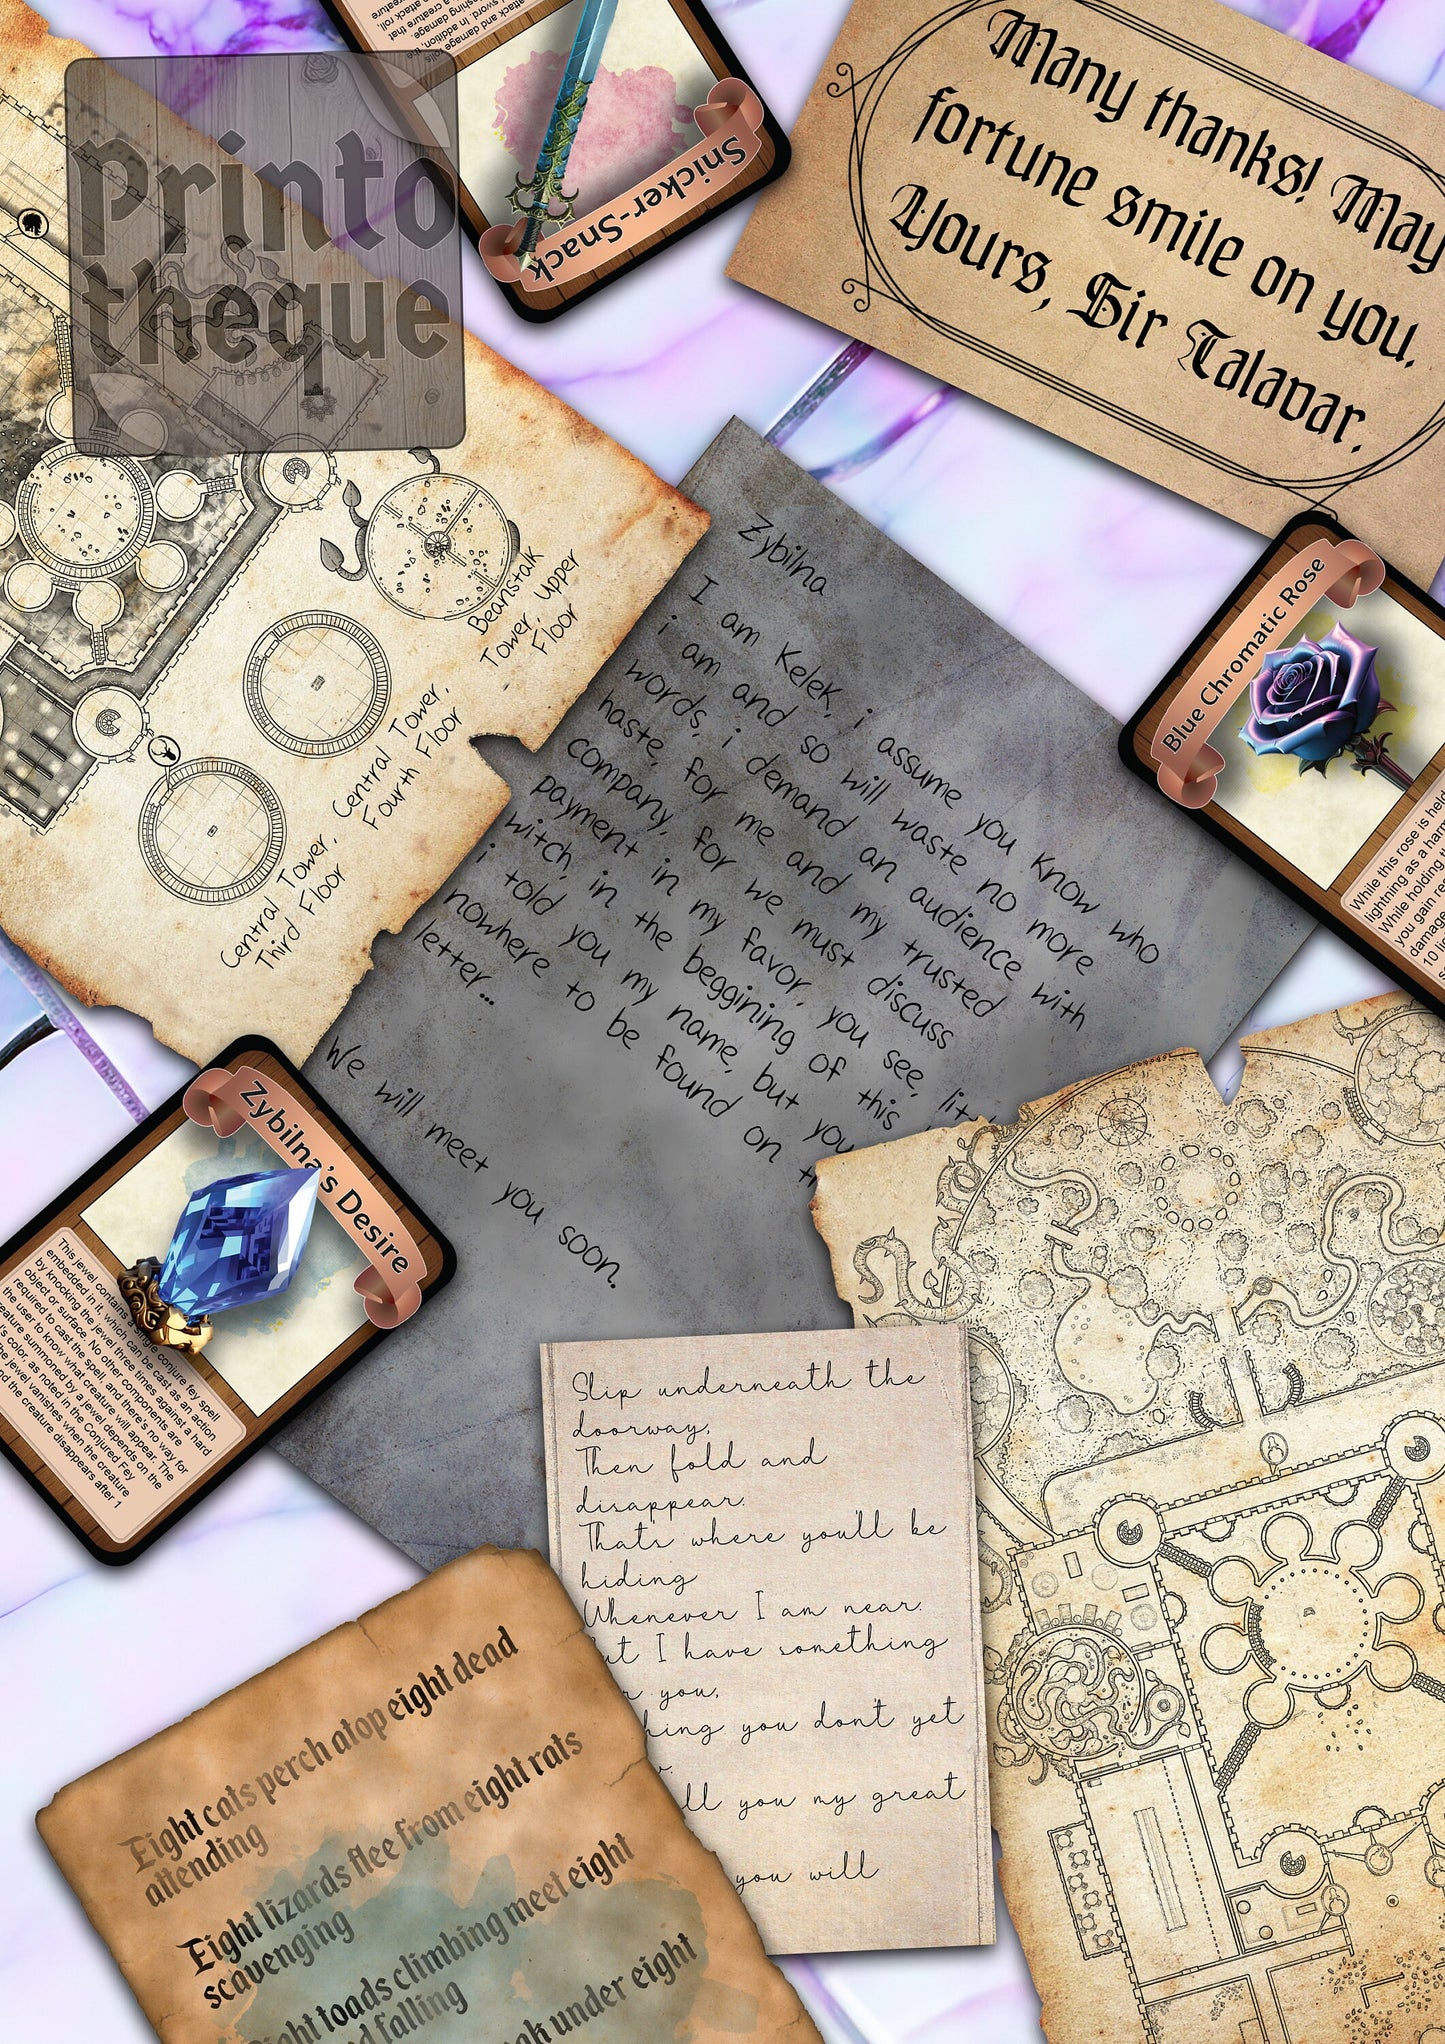 Printo
theque
attack and damage rolls
Snicker-Snack
Many thanks! May
fortune smile on you.
Yours, Sir Talavar.
Beanstalk
Tower, Upper
Floor
Central Tower,
Fourth Floor
Central Tower,
Third Floor
Zybilna
I am Kelek, i assume you know who
i am and so will waste no more
words, i demand an audience with
haste, for me and my trusted
company, for we must discuss
payment in my favor, you see,
witch, in the beggining of this
i told you my name, but you
nowhere to be found on
letter...
We will meet you soon.
Blue Chromatic Rose
While this rose is held
lightning as a
While holding
you gain
damage
10
Zybilna's Desire
This jewel contains a single conjure fey spell
embedded in it, which can be cast as an action
by knocking the jewel three times against a hard
object or surface. No other components are
required to cast the spell, and there's no way for
the user to know what creature will appear. The
creature summoned by a jewel depends on the
color, as noted in the Conjured Fey
The jewel vanishes when the creature
the creature disappears after 1
Slip underneath the
doorway,
Then fold and
disappear.
Thats where you'll be
hiding
Whenever I am near.
I have something
you,
you don't yet
you my great
you will
Eight cats perch atop eight dead
attending
Eight lizards flee from eight rats
scavenging
toads climbing meet eight
falling
under eight